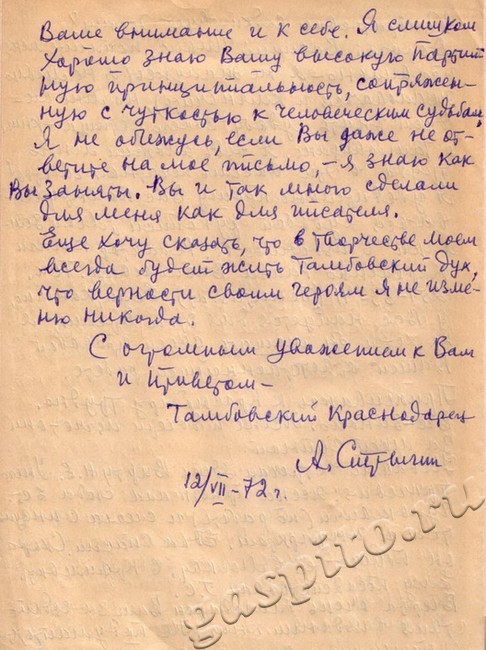 Ваше внимание и к себе. Я слишком
хорошо знаю Вашу высокую партий
ную принципиальность, сопряжен-
ную с чуткостью к человеческим судьбам,
Я не обижусь, если Вы даже не от-
ветите на мое письмо, – я знаю как
Вы заняты. Вы и так много сделали
для меня как для писателя.
Еще хочу сказать, что в творчестве моем
всегда будет жить Тамбовский дух,
что верности своим героям я не изме-
ню никогда.
С огромным уважением к Вам
и приветом –
Тамбовский Краснодарец
А. Стрыгин
12/VII-72 г.
gaspito.ru